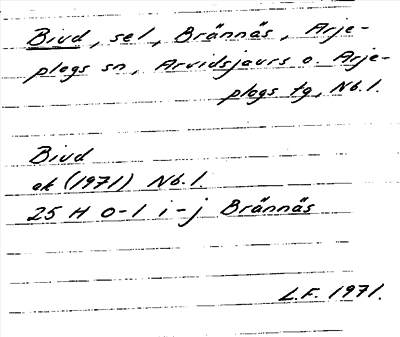 Bivd, sel, Brännäs, Arje-
plogs sn, Arvidsjaurs o. Arje-
plogs tg, Nb.l.
Bivd
ek (1971) Nb.l.
25 H 0-1 i-j Brännäs
L.F. 1971.